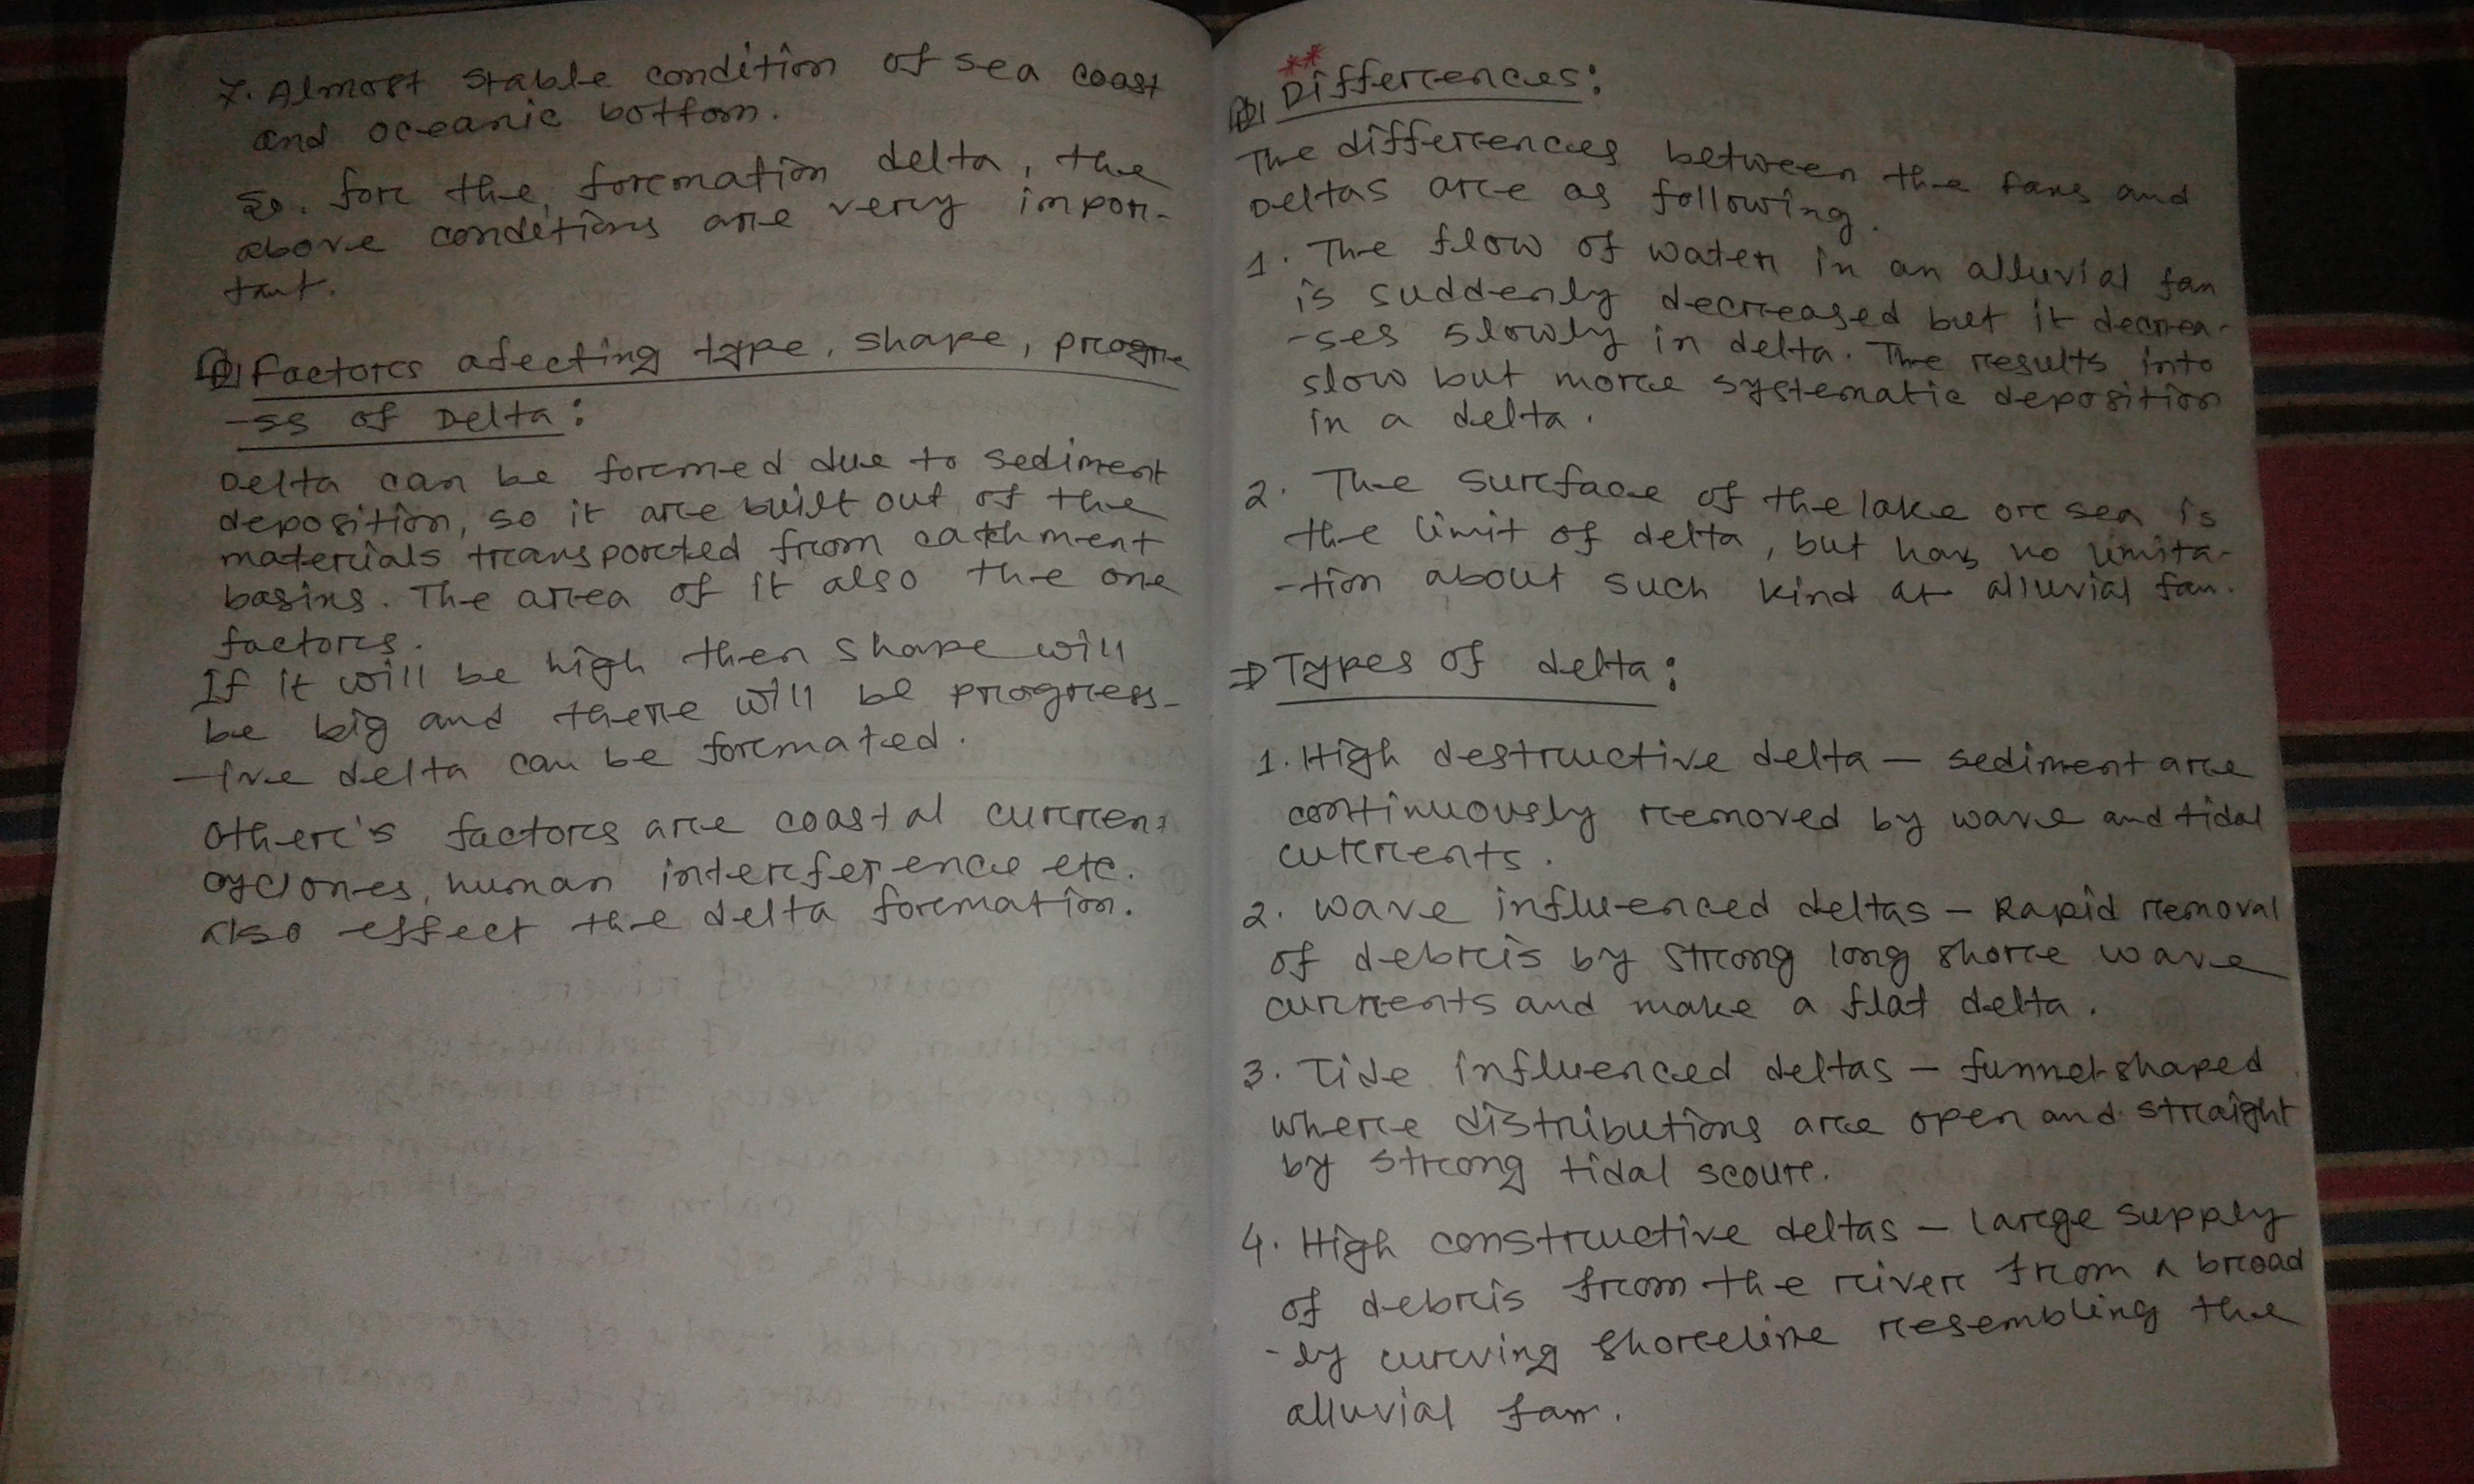 7. Almost stable condition of sea coast
and oceanic bottom.
So. for the, formation delta, the
above conditions are very impor-
tant.
Factors afecting type, shape, progre
-ss of Delta:
Delta can be formed due to sediment
deposition, so it are built out of the
materials transported from catchment
basins. The area of it also the one
factors.
If it will be high then shape will
be big and there will be progress-
-ive delta can be formated.
Other's factors are coastal curren,
cyclones, human interference etc.
also effect the delta formation.
**
Differences:
The differences between the fans and
Deltas are as following.
1. The flow of water in an alluvial fan
is suddenly decreased but it decrea-
-ses slowly in delta. The results into
slow but more systematic deposition
in a delta.
2. The surface of the lake or sea is
the limit of delta, but has no limita-
-tion about such kind at alluvial fan.
⇒ Types of delta:
1. High destructive delta — sediment are
continuously removed by wave and tidal
currents.
2. Wave influenced deltas — Rapid removal
of debris by strong long shore wave
currents and make a flat delta.
3. Tide influenced deltas — funnel shaped
where distributions are open and straight
by strong tidal scour.
4. High constructive deltas — large supply
of debris from the river from a broad
-ly curving shoreline resembling the
alluvial fan.